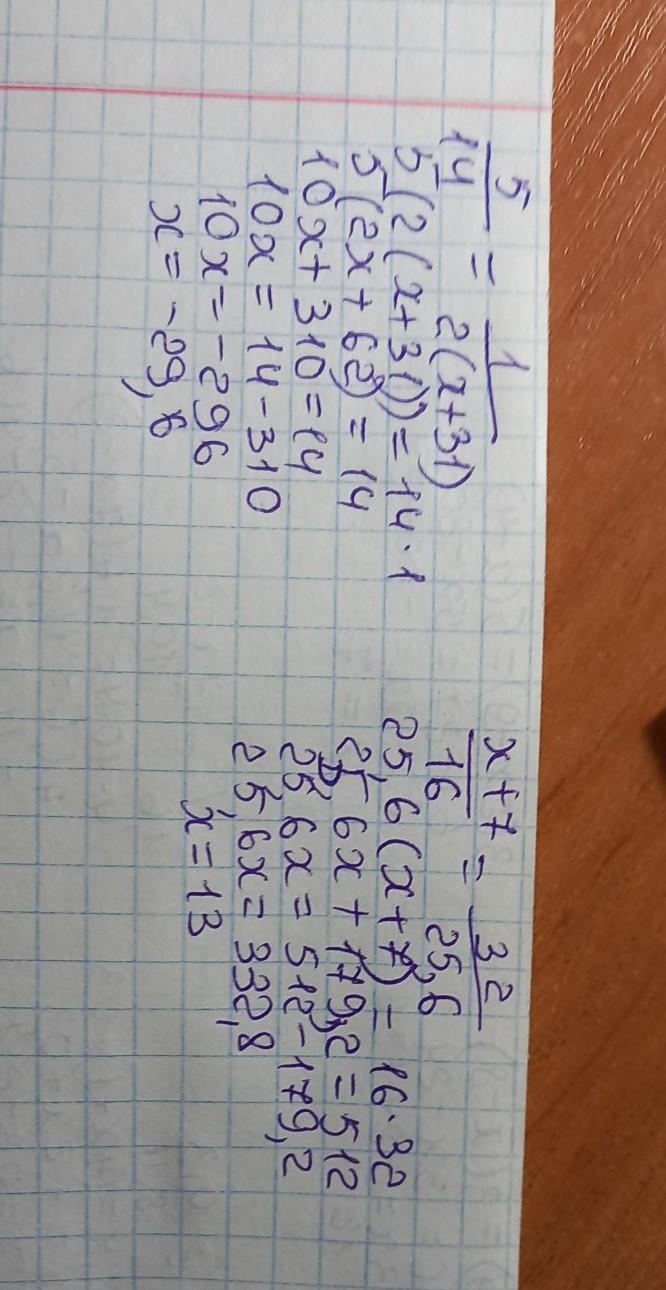 5/14 = 1/2(x+31)
5(2(x+31))=14·1
5(2x+62)=14
10x+310=14
10x=14-310
10x=-296
x=-29,6
x+7/16 = 32/25,6
25,6(x+7)=16·32
25,6x+179,2=512
25,6x=512-179,2
25,6x=332,8
x=13